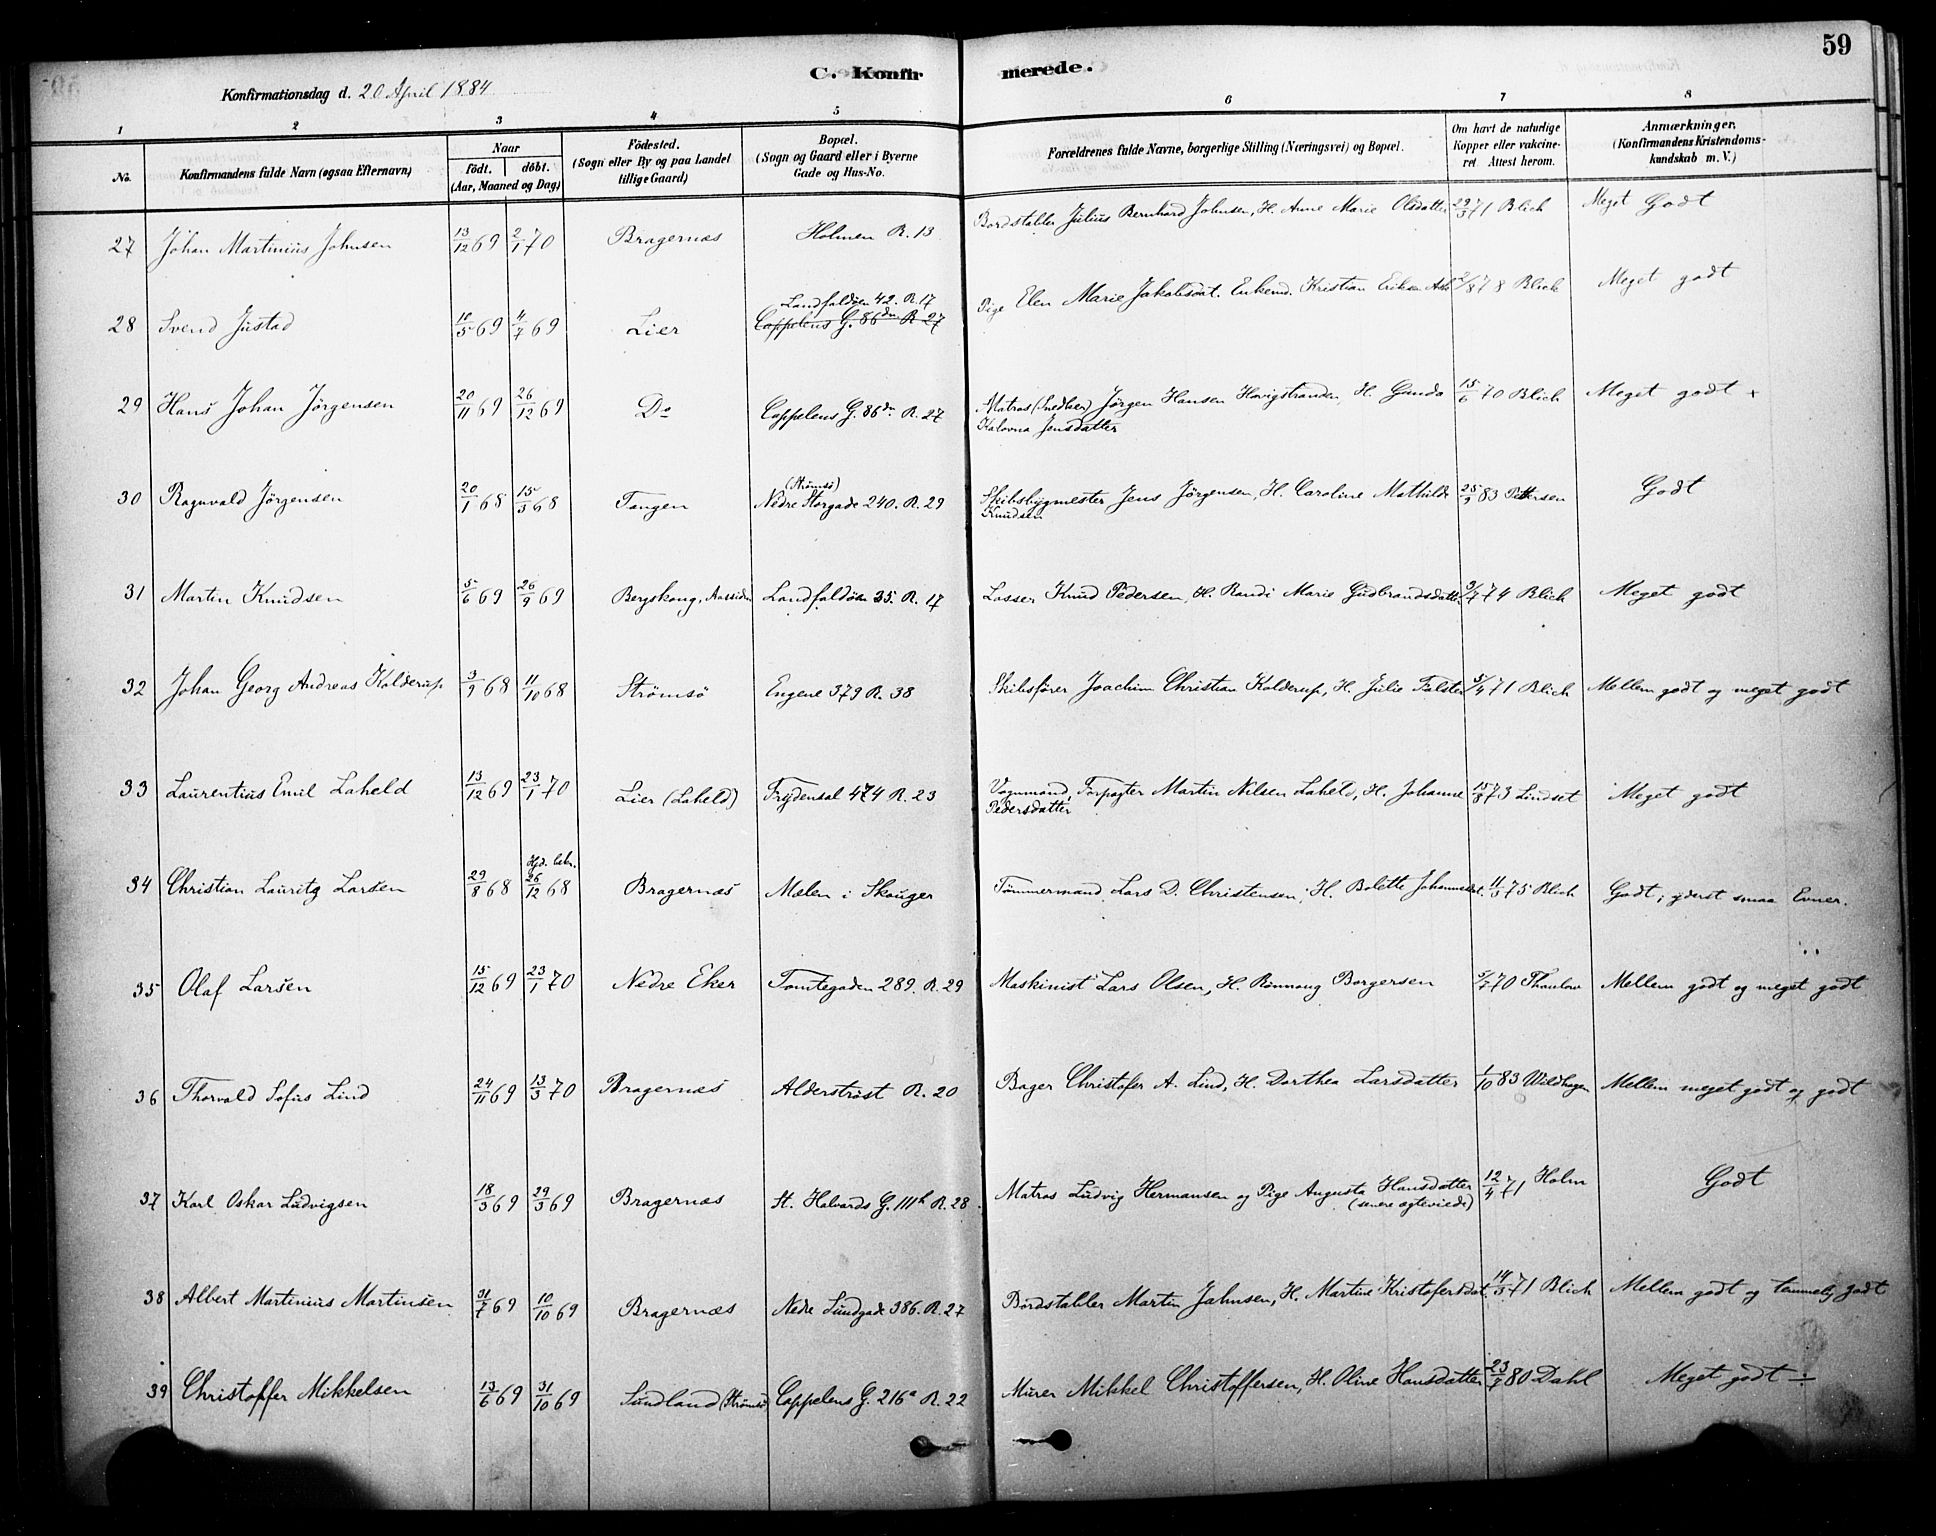 59
C. Konfir merede.
Konfirmationsdag d. 20 April 1884
1 2 3 4 5 6 7 8
No. Konfirmandens fulde Navn (ogsaa Efternavn) Naar födt. döbt. (Aar, Maaned og Dag) Födested. (Sogn eller By og paa Landet tillige Gaard) Bopæl. (Sogn og Gaard eller i Byerne Gade og Hus-No. Forældrenes fulde Navne, borgerlige Stilling (Næringsvei) og Bopæl. Om havt de naturlige Kopper eller vakcineret. Attest herom. Anmærkninger. (Konfirmandens Kristendomskundskab m. V.)
27 Johan Martinius Johnsen 13/12 69 2/1 70 Bragernæs Holmen R. 13 Bordstabler Julius Bernhard Johnsen, H. Anne Marie Olsdatter 29/3 71 Blich Meget Godt
28 Svend Justad 10/5 69 4/7 69 Lier Landfaldöen 42. R. 17 Cappelens G. 86 R 27 Pige Elen Marie Jakobsdat. Enkemd. Kristian Eriksen 2/8 78 Blich Meget godt
29 Hans Johan Jörgensen 20/11 69 26/12 69 Do Cappelens G. 86 R. 27 Matros (Snedker) Jörgen Hansen Havigstranden, H. Gunda 15/6 70 Blich Meget godt +
Kalovna Jensdatter
30 Ragnvald Jörgensen 20/1 68 15/3 68 Tangen (Strömsö) Nedre Storgade 240. R. 29 Skibsbygmester Jens Jörgensen, H. Caroline Mathilde 25/9 83 Petersen Godt
Knudsen
31 Martin Knudsen 5/6 69 26/9 69 Bergskaug, Aassiden Landfaldöen 35. R. 17 Losser Knud Pedersen, H. Randi Marie Gudbrandsdatter 3/7 74 Blich Meget godt
32 Johan Georg Andreas Kolderup 3/9 68 11/10 68 Strömsö Engene 379 R. 38 Skibsförer Joachim Christian Kolderup, H. Julie Falsten 5/4 71 Blich Mellem godt og meget godt
33 Laurentius Emil Laheld 13/12 69 23/1 70 Lier (Laheld) Frydendal 474 R. 23 Vognmand, Forpagter Martin Nilsen Laheld, H. Johanne 15/8 73 Lindset Meget godt
Pedersdatter
34 Christian Lauritz Larsen 29/8 68 Hjd. 26/12 68 Bragernæs Mælen i Skouger Tömmermand Lars D. Christensen, H. Bolette Johannesdat. 11/5 75 Blich Godt; yderst smaa Evner.
35 Olaf Larsen 15/12 69 23/1 70 Nedre Eker Tomtegaden 289. R. 29 Maskinist Lars Olsen, H. Rönnaug Borgersen 5/7 70 Thaulow Mellem godt og meget godt
36 Thorvald Sofus Lind 24/11 69 13/3 70 Bragernæs Alderströst R. 20 Bager Christofer A. Lind, H. Dorthea Larsdatter 1/10 83 Wildhagen Mellem meget godt og godt
37 Karl Oskar Ludvigsen 18/3 69 29/3 69 Bragernæs St. Halvards G. 111h R. 28 Matros Ludvig Hermansen og Pige Augusta Hansdatter 12/4 71 Holm Godt
(senere ægteviede)
38 Albert Martinius Martinsen 31/7 69 10/10 69 Bragernæs Nedre Sundgade 386. R. 27 Bordstabler Martin Jahnsen, H. Martine Kristofersdat. 14/5 71 Blich Mellem godt og temmelig godt
39 Christoffer Mikkelsen 13/6 69 31/10 69 Sundland (Strömsö) Cappelens G. 216a R. 22 Murer Mikkel Christoffersen, H. Oline Hansdatter 23/7 80 Dahl Meget godt ÷